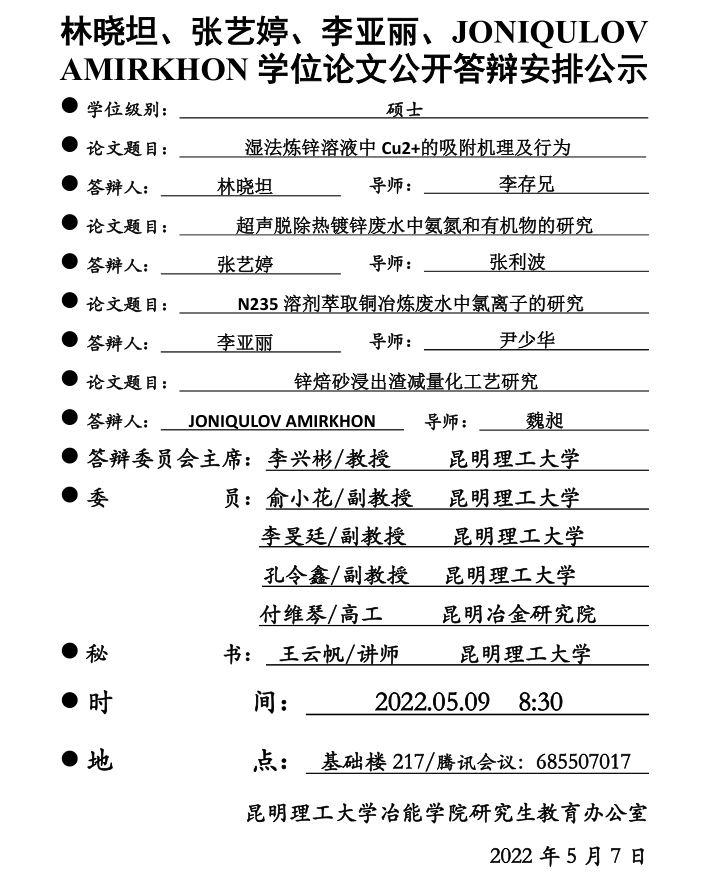 林晓坦、张艺婷、李亚丽、JONIQULOV
AMIRKHON 学位论文公开答辩安排公示
● 学位级别： 硕士
● 论文题目： 湿法炼锌溶液中 Cu2+的吸附机理及行为
● 答辩人： 林晓坦 导师： 李存兄
● 论文题目： 超声脱除热镀锌废水中氨氮和有机物的研究
● 答辩人： 张艺婷 导师： 张利波
● 论文题目： N235 溶剂萃取铜冶炼废水中氯离子的研究
● 答辩人： 李亚丽 导师： 尹少华
● 论文题目： 锌焙砂浸出渣减量化工艺研究
● 答辩人： JONIQULOV AMIRKHON 导师： 魏昶
● 答辩委员会主席：李兴彬/教授 昆明理工大学
● 委 员：俞小花/副教授 昆明理工大学
李旻廷/副教授 昆明理工大学
孔令鑫/副教授 昆明理工大学
付维琴/高工 昆明冶金研究院
● 秘 书： 王云帆/讲师 昆明理工大学
● 时 间： 2022.05.09 8:30
● 地 点： 基础楼 217/腾讯会议：685507017
昆明理工大学冶能学院研究生教育办公室
2022 年 5 月 7 日